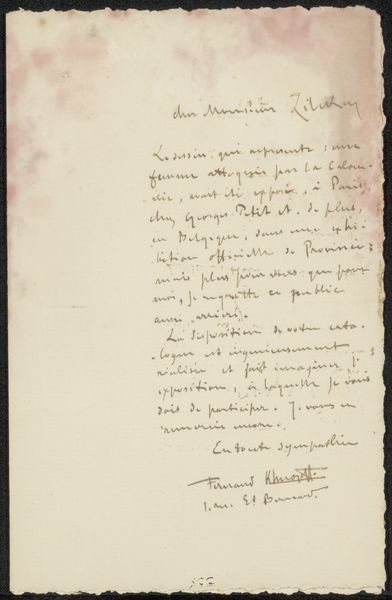 cher Monsieur Zilcken
Le dessin, qui represente : une
femme attaquée par la Calom-
nie, avait été exposé, à Paris,
chez Georges Petit et, de plus,
en Belgique, dans une exhi-
bition officielle de Province:
mais plus pour vous que pour
moi, je regrette ce public
aussi arriéré.
La disposition de votre cata-
logue est ingénieusement
réalisée et fait imaginer l'
exposition, à laquelle je vous
dois de participer. Je vous en
remercie encore.
En toute sympathie
Fernand Khnopff.
1. rue St Bernard.